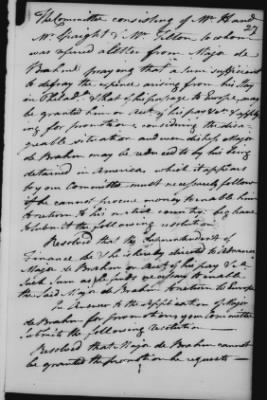 27
The Committee consisting of Mr Hand
Mr Spaight & Mr Tilton to whom
was refered a Letter from Major de
Brahm praying that a sum sufficient
to defray the expence arising from his stay
in Philada. & that of his passage to Europe, may
be granted him on Acct. of his pay &c & apply
ing for promotion, considering the disa-
greable situation and even distress Major
de Brahm may be reduced to by his being
detained in America, which it appears
to your Committee must necessarily follow
if he cannot procure money to enable him
to return to his native country beg leave
to submit the following resolution
Resolved that the Superintendent of
Finance be & he is hereby directed to advance
Major de Brahm on Acct. of his pay &c a
Such Sum as he judges necessary to enable
the said Major de Brahm to return to Europe
In Answer to the Application of Major
de Brahm for promotion your Committee
submits the following resolution
Resolved that Major de Brahm cannot
be granted the promotion he requests